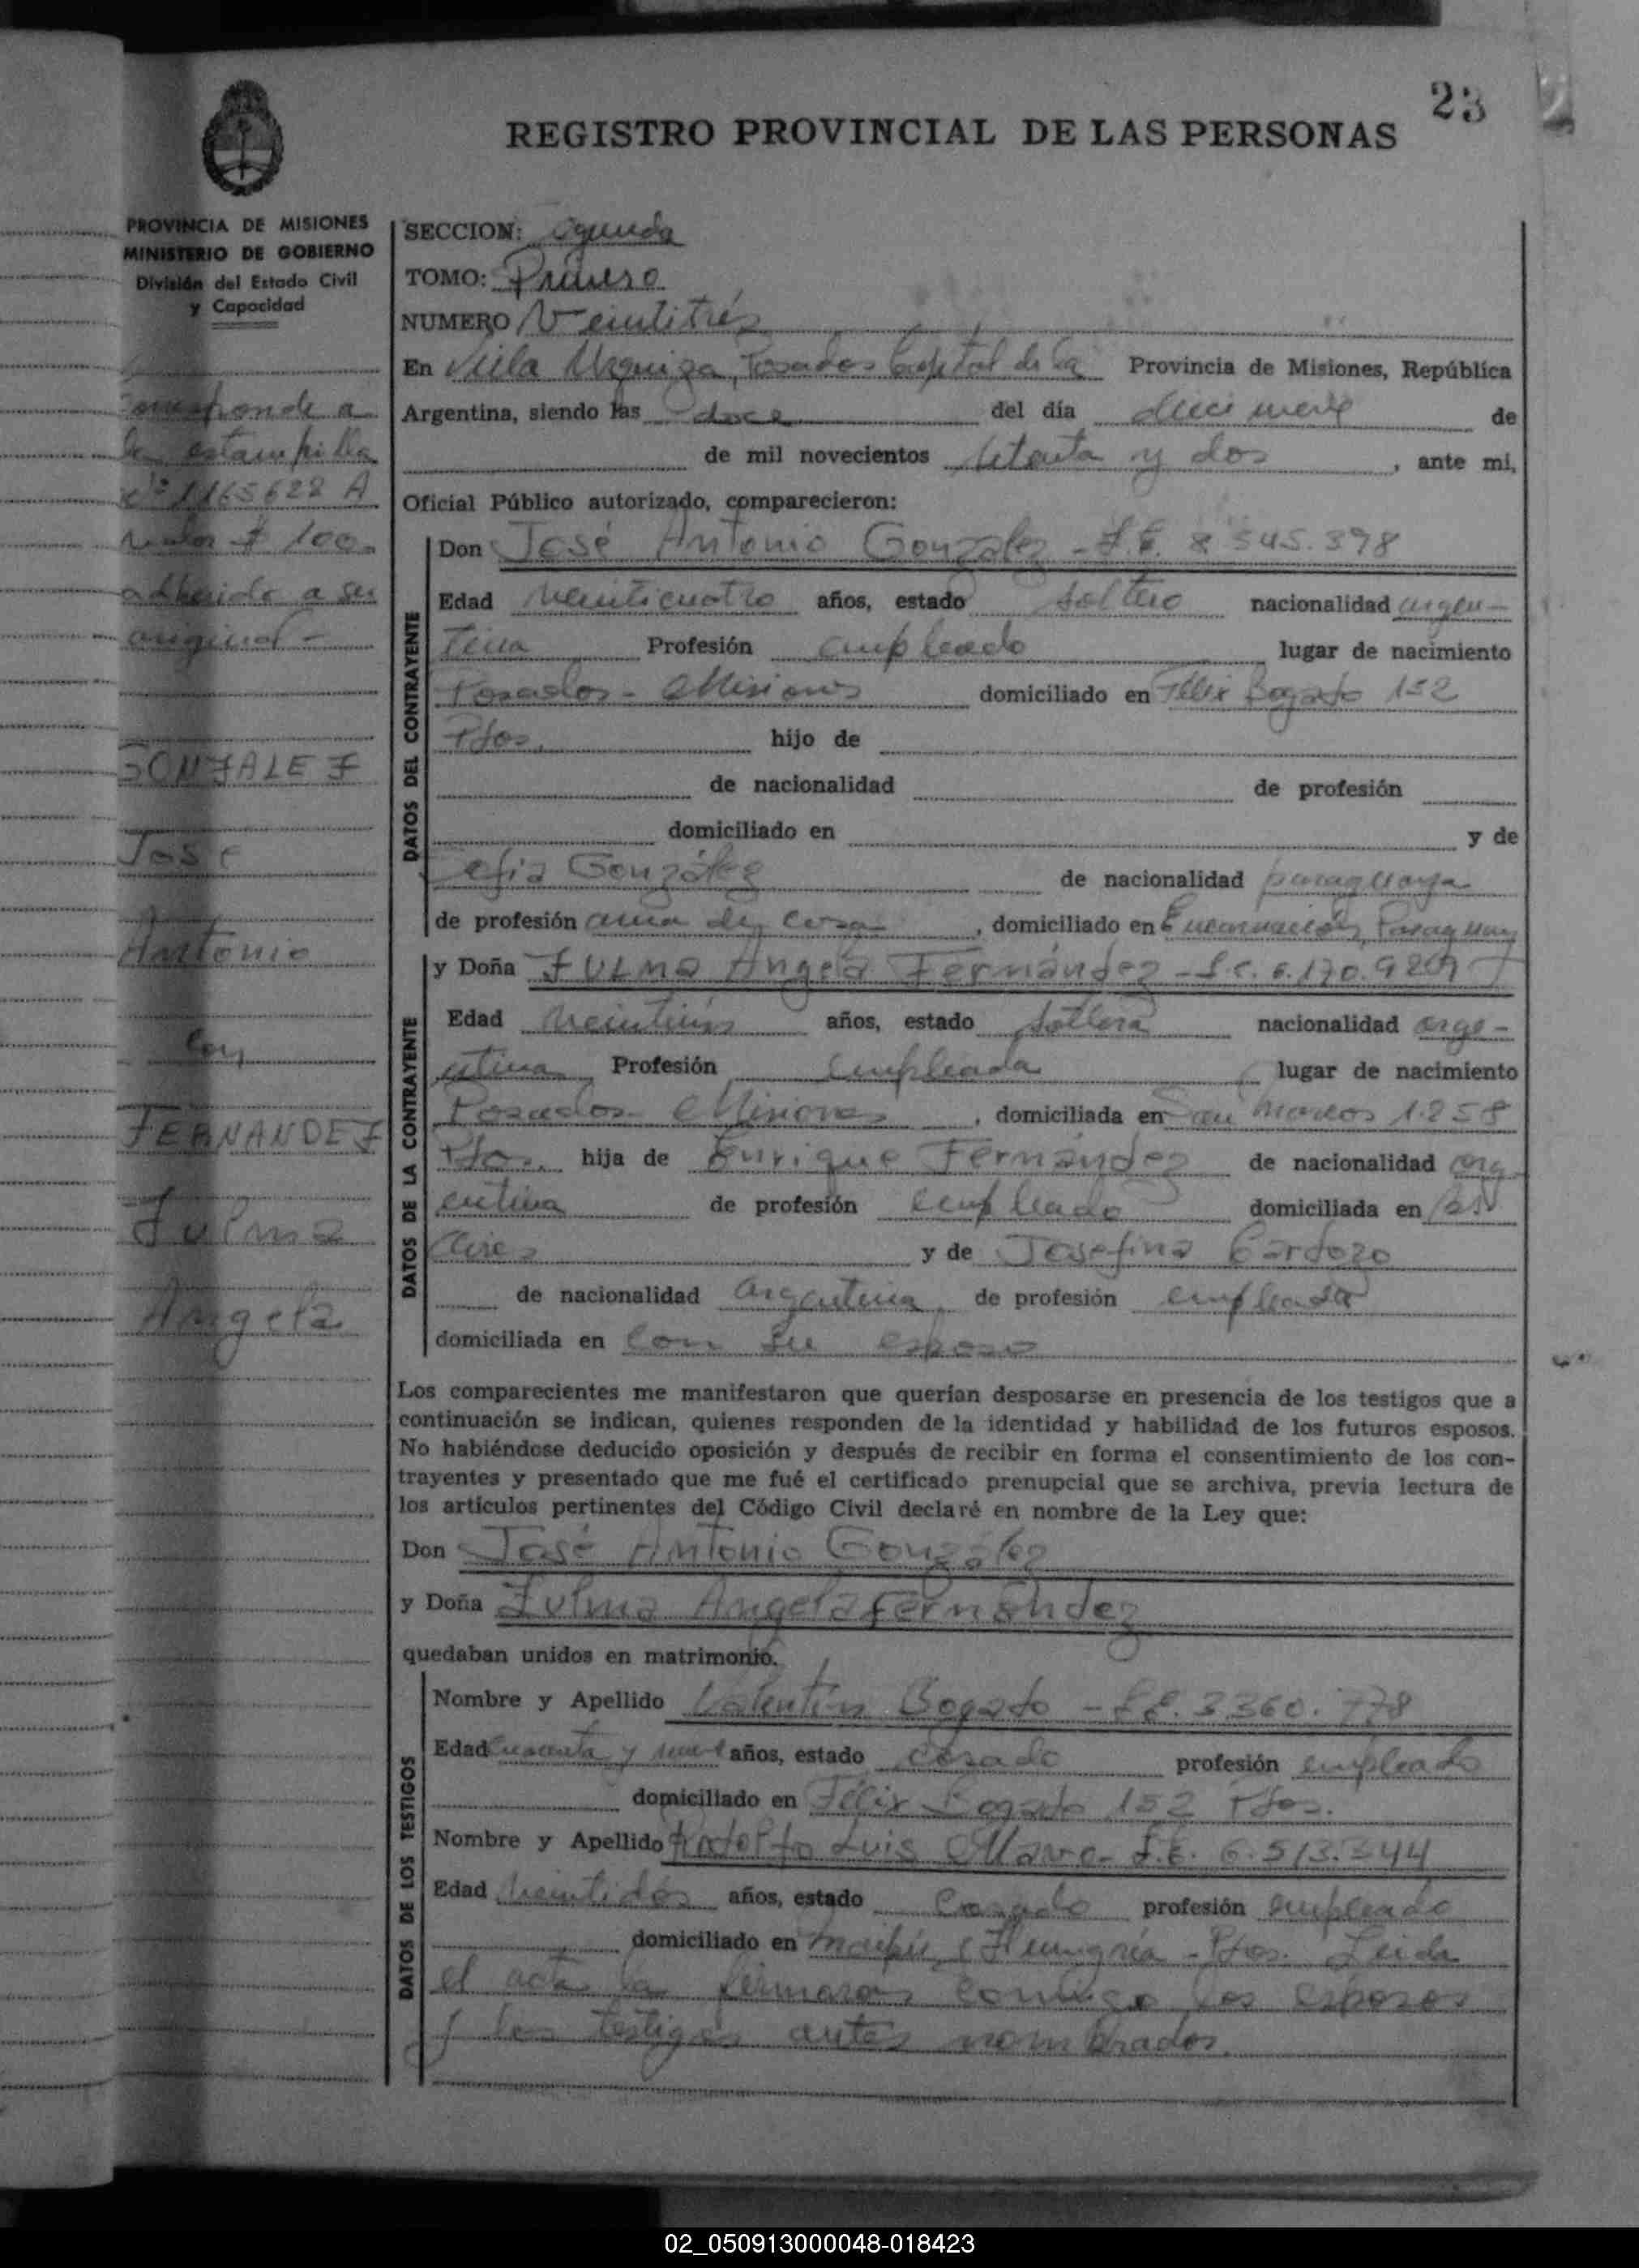 23
REGISTRO PROVINCIAL DE LAS PERSONAS
PROVINCIA DE MISIONES
MINISTERIO DE GOBIERNO
División del Estado Civil
y Capacidad
SECCION: Segunda
TOMO: Primero
NUMERO Veintitrés
En Villa Urquiza, Posadas Capital de la Provincia de Misiones, República
Argentina, siendo las doce del día diecinueve de
de mil novecientos setenta y dos, ante mi,
Oficial Público autorizado, comparecieron:
Corresponde a
la estampilla
Nº 1165628 A
valor $ 100
adherida a su
original -
GONZALEZ
José
Antonio
con
FERNANDEZ
Zulma
Angela
DATOS DEL CONTRAYENTE
Don José Antonio González - L.E. 8.545.398
Edad veinticuatro años, estado soltero nacionalidad argen-
tina Profesión empleado lugar de nacimiento
Posadas - Misiones domiciliado en Félix Bogado 152
Pdas. hijo de
de nacionalidad de profesión
domiciliado en y de
González de nacionalidad paraguaya
de profesión ama de casa, domiciliado en Encarnación, Paraguay
DATOS DE LA CONTRAYENTE
y Doña Zulma Angela Fernández - L.C. 6.170.929
Edad veintiún años, estado soltera nacionalidad arge-
ntina Profesión empleada lugar de nacimiento
Posadas - Misiones, domiciliada en San Marcos 1258
Pdas. hija de Enrique Fernández de nacionalidad arg
entina de profesión empleado domiciliada en Bs
Aires y de Josefina Cardozo
de nacionalidad argentina, de profesión empleada
domiciliada en con su esposo
Los comparecientes me manifestaron que querían desposarse en presencia de los testigos que a
continuación se indican, quienes responden de la identidad y habilidad de los futuros esposos.
No habiéndose deducido oposición y después de recibir en forma el consentimiento de los con-
trayentes y presentado que me fué el certificado prenupcial que se archiva, previa lectura de
los artículos pertinentes del Código Civil declaré en nombre de la Ley que:
Don José Antonio González
y Doña Zulma Angela Fernández
quedaban unidos en matrimonio.
DATOS DE LOS TESTIGOS
Nombre y Apellido Valentín Bogado - L.E. 3.360.778
Edad cuarenta y nueve años, estado casado profesión empleado
domiciliado en Félix Bogado 152 Pdas.
Nombre y Apellido Luis L.E. 6.513.344
Edad veintidós años, estado casado profesión empleado
domiciliado en Maipú e Hungría - Pdas. Leida
el acta la firmaron conmigo los esposos
y los testigos antes nombrados.
02_050913000048-018423